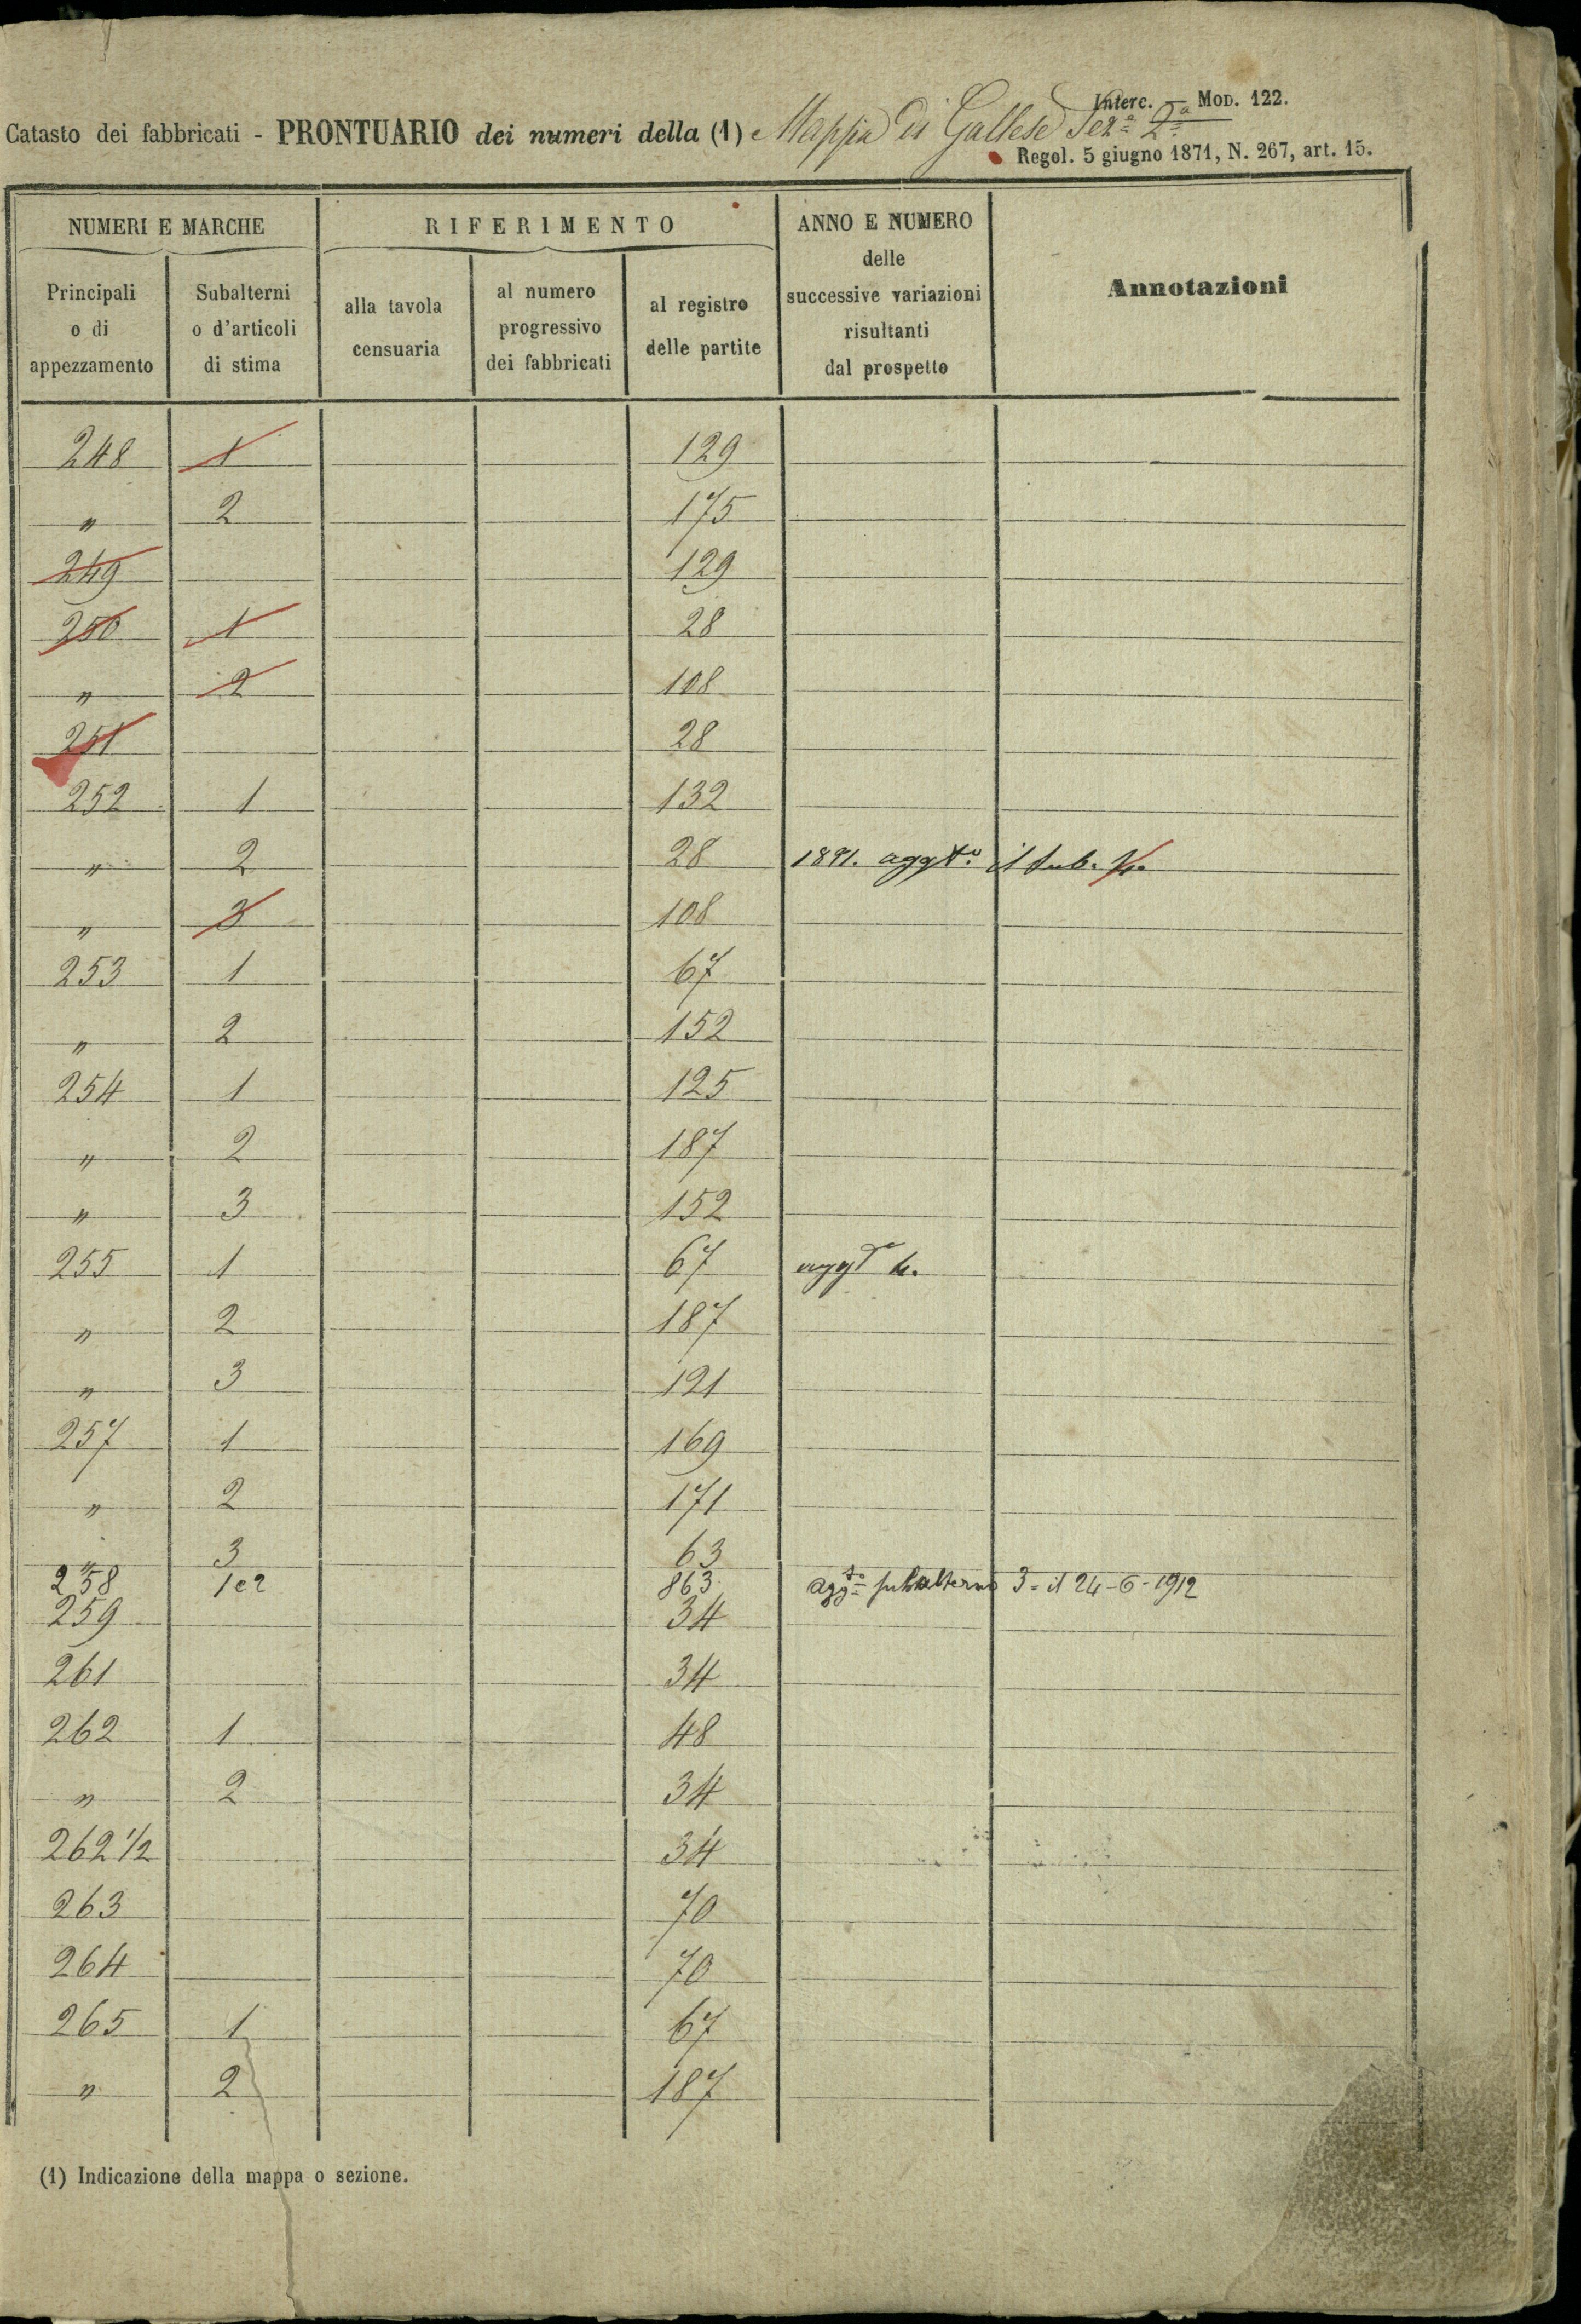 Interc. — MOD. 122.
Catasto dei fabbricati - PRONTUARIO dei numeri della (1) Mappa di Gallese Sez.e 2.a
Regol. 5 giugno 1871, N. 267, art. 15.
NUMERI E MARCHE
RIFERIMENTO
ANNO E NUMERO
delle
successive variazioni
risultanti
dal prospetto
Annotazioni
Principali
o di
appezzamento
Subalterni
o d'articoli
di stima
alla tavola
censuaria
al numero
progressivo
dei fabbricati
al registro
delle partite
248 1 129
" 2 175
249 129
250 1 28
" 2 108
251 28
252 1 132
" 2 28 1891. aggto. il sub. 4.
" 3 108
253 1 67
" 2 152
254 1 125
" 2 187
" 3 152
255 1 67 aggto 4.
" 2 187
" 3 121
257 1 169
" 2 171
" 3 63
258 1 e 2 863 aggto subalterno 3 = il 24-6-1912
259 34
261 34
262 1 48
" 2 34
262 1/2 34
263 70
264 70
265 1 67
" 2 187
(1) Indicazione della mappa o sezione.